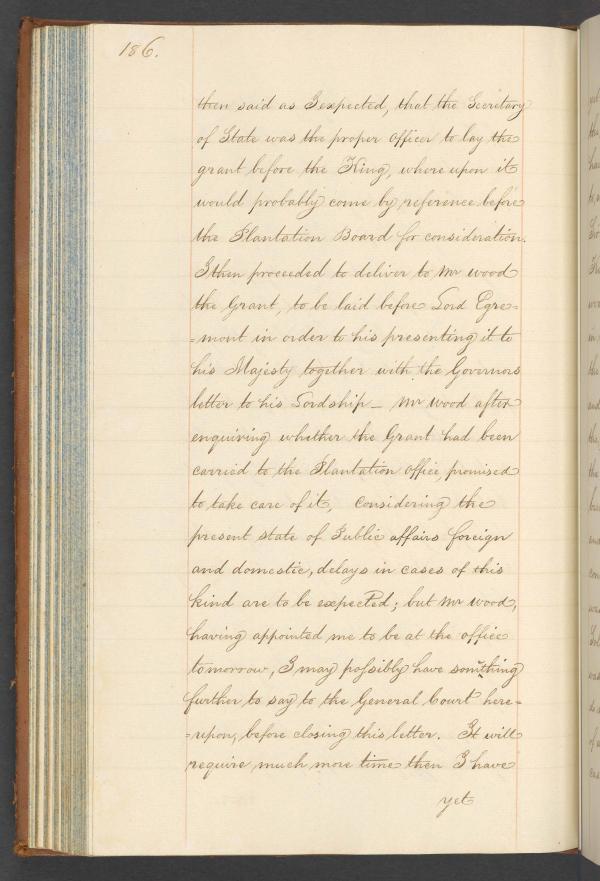 186.
then said as I expected, that the Secretary
of State was the proper officer to lay the
grant before the King, where upon it
would probably come by reference before
the Plantation Board for consideration.
I then proceeded to deliver to Mr wood
the Grant, to be laid before Lord Egre=
=mont in order to his presenting it to
his Majesty together with the Governors
letter to his Lordship_ Mr wood after
enquiring whether the Grant had been
carried to the Plantation office, promised
to take care of it, considering the
present state of Public affairs foreign
and domestic, delays in cases of this
kind are to be expected; but Mr wood,
having appointed me to be at the office
tomorrow, I may possibly have something
further to say to the General Court here=
=upon, before closing this letter. It will
require much more time then I have
yet